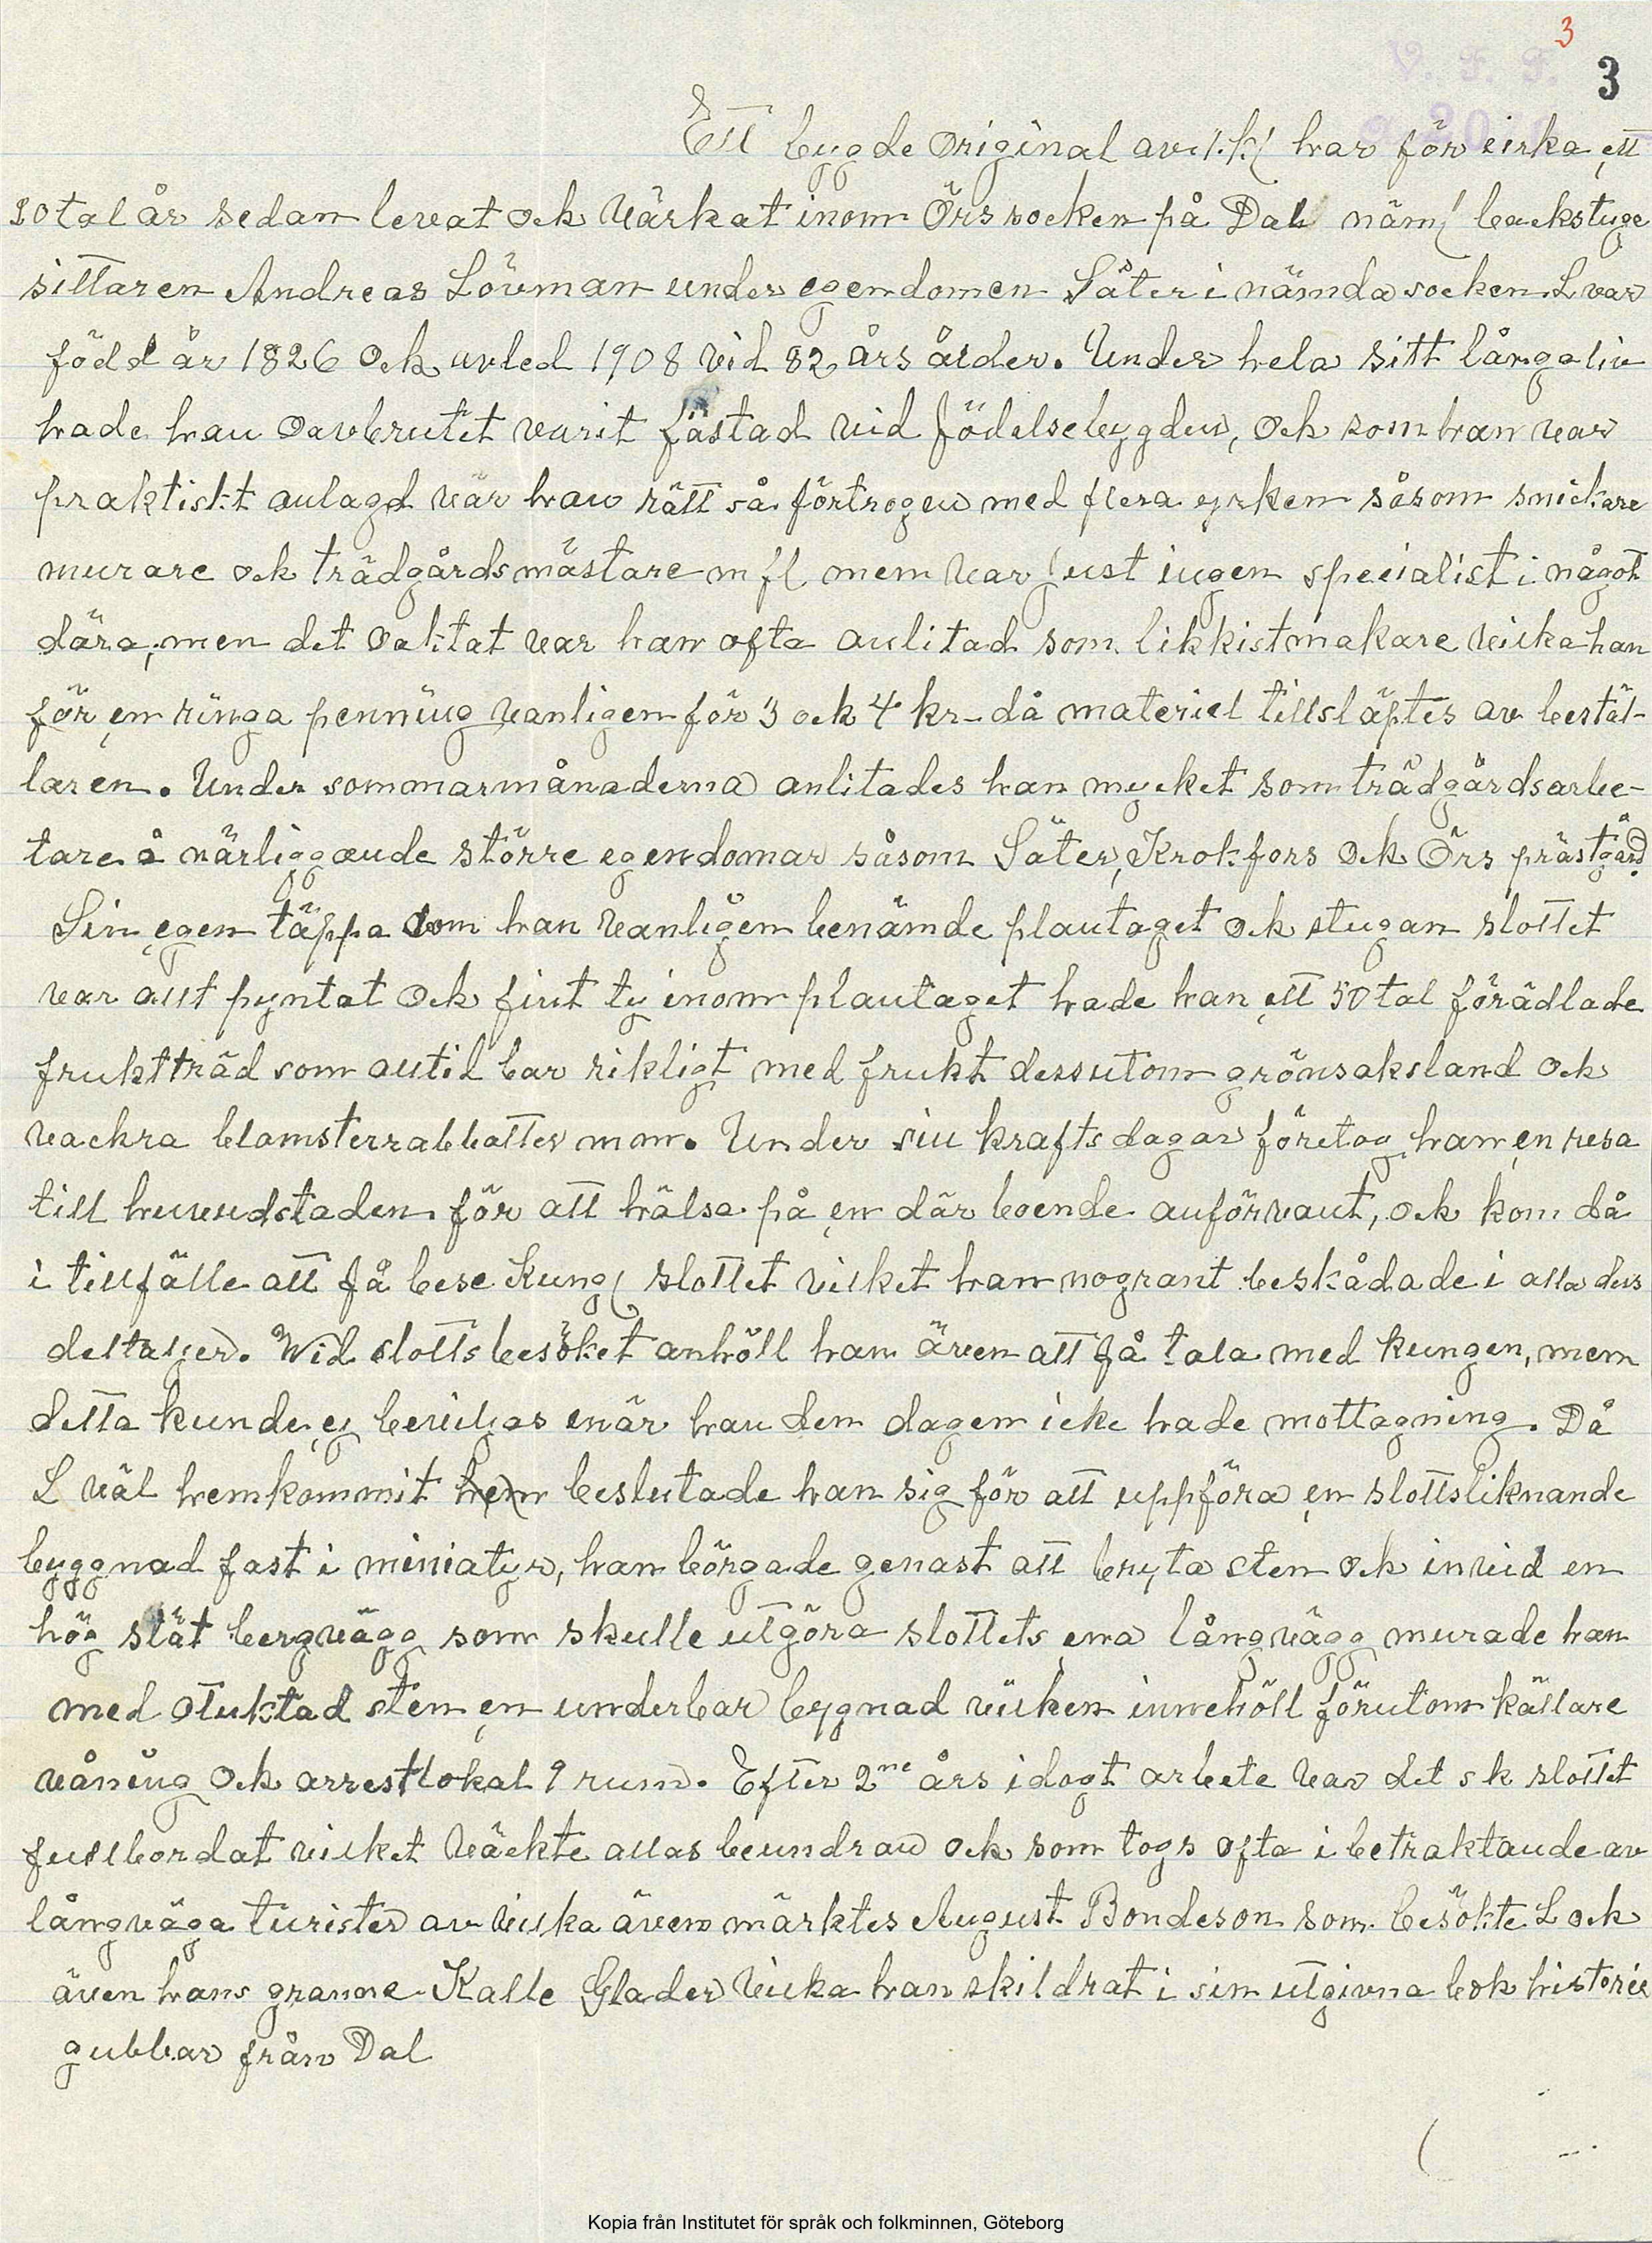 3
V. F. F.
3
Ett bygde Original av 1. kl har för cirka ett
30 tal år sedan levat ock värkat inom Örs socken på Dal näml backstuge
sittaren Andreas Lövman under egendomen Säter i nämda socken. L var
född år 1826 Ock avled 1908 vid 82 års ålder. Under hela sitt långa liv
hade han oavbrutet varit fästad vid födelsebygden, Ock som han var
praktiskt anlagd var han rätt så förtrogen med flera yrken såsom snickare
murare ock trädgårdsmästare m fl men var just ingen specialist i något
dära, men det oaktat var han ofta anlitad som likkistmakare vilka han
för en ringa penning vanligen för 3 ock 4 kr då materiel tillsläptes av bestäl-
laren. Under sommarmånaderna anlitades han mycket som trädgårdsarbe-
tare å närliggande större egendomar såsom Säter, Krokfors Ock Örs prästgård
Sin egen täppa som han vanligen benämde plantaget ock stugan slottet
var allt pyntat Ock fint ty inom plantaget hade han ett 50 tal förädlade
fruktträd som alltid bar rikligt med frukt dessutom grönsaksland Ock
vackra blomsterrabbatter m m. Under sin krafts dagar företog han en resa
till huvudstaden för att hälsa på en där boende anförvant, ock kom då
i tillfälle att få bese Kungl slottet vilket han nogrant beskådade i alla dess
deltaljer. Wid slottsbesöket anhöll han även att få tala med kungen, men
detta kunde ej beviljas enär han den dagen icke hade mottagning. Då
L väl hemkommit hem beslutade han sig för att uppföra en slottsliknande
byggnad fast i miniatyr, han börgade genast att bryta sten ock invid en
hög slät bergvägg som skulle utgöra slottets ena långvägg murade han
med otuktad sten en underbar bygnad vilken innehöll förutom källare
våning Ock arrestlokal 9 rum. Efter 2ne års idogt arbete var det s k slottet
fullbordat vilket väckte allas beundran ock som togs ofta i betraktande av
långväga turister av vilka även märktes August Bondeson som besökte L ock
även hans granne Kalle Glader vilka han skildrat i sin utgivna bok historie
gubbar från Dal
Kopia från Institutet för språk och folkminnen, Göteborg